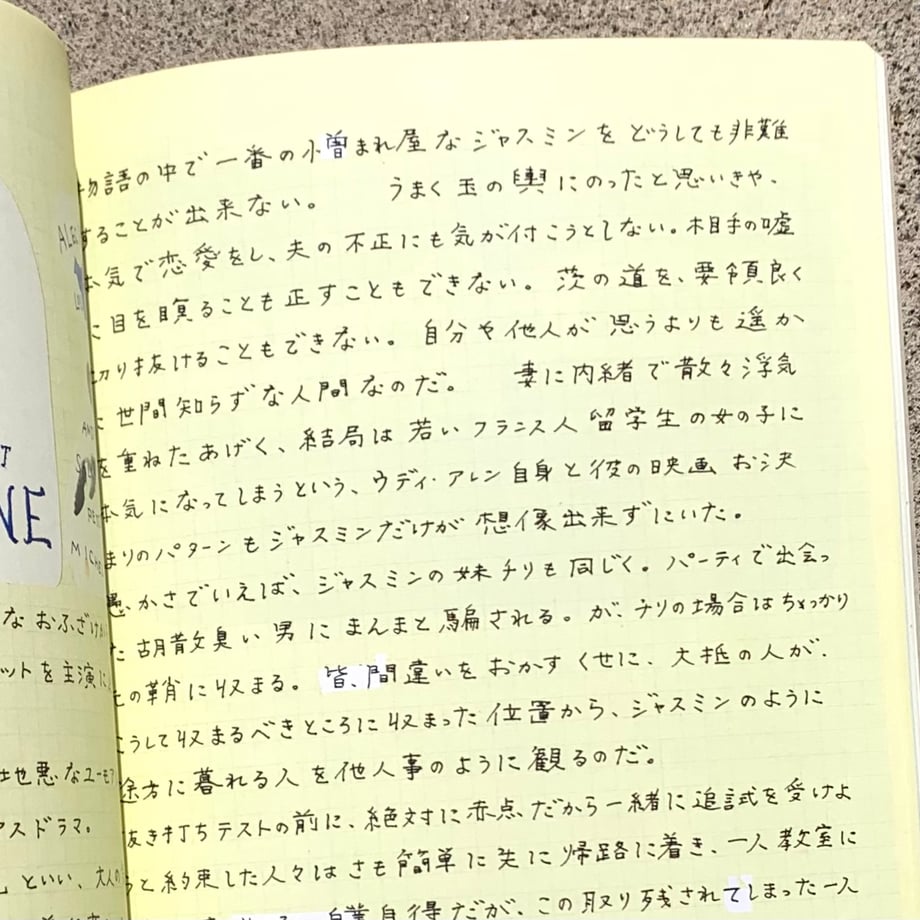 な おふざけ
ットを主演に
地悪なユーモア
アスドラマ。
といい、大人の
NE
物語の中で一番の小曽まれ屋なジャスミンをどうしても非難
することが出来ない。 うまく玉の輿にのったと思いきや、
本気で恋愛をし、夫の不正にも気が付こうとしない。相手の嘘
に目を瞑ることも正すこともできない。茨の道を、要領良く
切り抜けることもできない。自分や他人が思うよりも遥か
に世間知らずな人間なのだ。 妻に内緒で散々浮気
を重ねたあげく、結局は若いフランス人留学生の女の子に
本気になってしまうという、ウディ・アレン自身と彼の映画お決
まりのパターンもジャスミンだけが想像出来ずにいた。
愚かさでいえば、ジャスミンの妹チリも同じく。パーティで出会っ
た胡散臭い男にまんまと騙される。が、チリの場合はちゃっかり
元の鞘に収まる。皆、間違いをおかすくせに、大抵の人が、
こうして収まるべきところに収まった位置から、ジャスミンのように
途方に暮れる人を他人事のように観るのだ。
抜き打ちテストの前に、絶対に赤点だから一緒に追試を受けよ
うと約束した人々はさも簡単に先に帰路に着き、一人教室に
自業自得だが、この取り残されてしまった一人